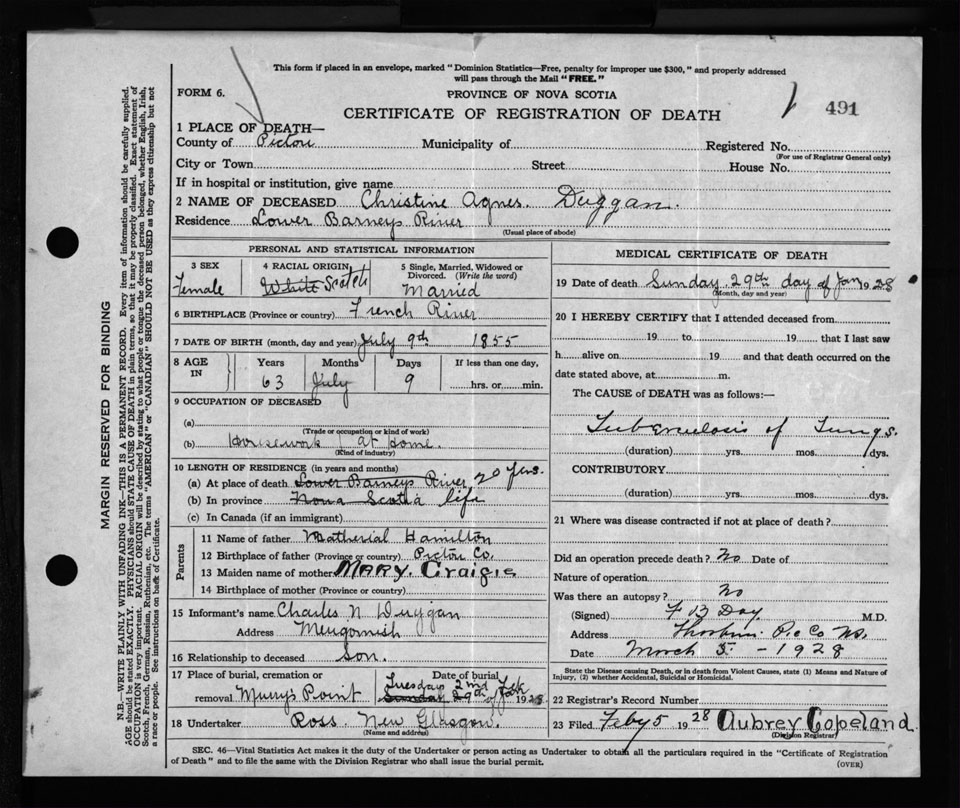 This form if placed in an envelope, marked "Dominion Statistics—Free, penalty for improper use $300," and properly addressed
will pass through the Mail "FREE."
FORM 6.
PROVINCE OF NOVA SCOTIA
CERTIFICATE OF REGISTRATION OF DEATH
491
1 PLACE OF DEATH—
County of Pictou Municipality of Registered No.
(For use of Registrar General only)
City or Town Street House No.
If in hospital or institution, give name
2 NAME OF DECEASED Christine Agnes Duggan.
Residence Lower Barneys River
(Usual place of abode)
PERSONAL AND STATISTICAL INFORMATION
3 SEX 4 RACIAL ORIGIN 5 Single, Married, Widowed or
Divorced. (Write the word)
Female White Scotch Married
6 BIRTHPLACE (Province or country) French River
7 DATE OF BIRTH (month, day and year) July 9th 1855
8 AGE IN Years Months Days If less than one day,
63 July 9 hrs. or min.
9 OCCUPATION OF DECEASED
(a)
(Trade or occupation or kind of work)
(b) Housework at Home.
(Kind of industry)
10 LENGTH OF RESIDENCE (in years and months)
(a) At place of death Lower Barneys River 20 yrs.
(b) In province Nova Scotia life
(c) In Canada (if an immigrant)
Parents
11 Name of father Matherial Hamilton
12 Birthplace of father (Province or country) Pictou Co.
13 Maiden name of mother MARY. Craigie
14 Birthplace of mother (Province or country)
15 Informant's name Charles N Duggan
Address Merigomish
16 Relationship to deceased Son.
17 Place of burial, cremation or Date of burial
Tuesday 2nd
removal Point Sunday 29th of 1928
18 Undertaker Ross New Glasgow.
(Name and address)
MEDICAL CERTIFICATE OF DEATH
19 Date of death Sunday 29th day of Jan 1928
(Month, day and year)
20 I HEREBY CERTIFY that I attended deceased from
19 to 19 that I last saw
h alive on 19 and that death occurred on
date stated above, at m.
The CAUSE of DEATH was as follows:—
Tuberculosis of Lungs.
(duration) yrs. mos. dys.
CONTRIBUTORY
(duration) yrs. mos. dys.
21 Where was disease contracted if not at place of death?
Did an operation precede death? No Date of
Nature of operation
Was there an autopsy? No
(Signed) F B Day M.D.
Address Thorburn Pic Co NS.
Date March 5 - 1928
State the Disease causing Death, or in death from Violent Causes, state (1) Means and Nature of
Injury, (2) whether Accidental, Suicidal or Homicidal.
22 Registrar's Record Number
23 Filed Feby 5 1928 Aubrey Copeland
(Division Registrar)
SEC. 46—Vital Statistics Act makes it the duty of the Undertaker or person acting as Undertaker to obtain all the particulars required in the "Certificate of Registration
of Death" and to file the same with the Division Registrar who shall issue the burial permit.
(OVER)
MARGIN RESERVED FOR BINDING
N.B.—WRITE PLAINLY WITH UNFADING INK—THIS IS A PERMANENT RECORD. Every item of information should be carefully supplied.
AGE should be stated EXACTLY. PHYSICIANS should STATE CAUSE OF DEATH in plain terms, so that it may be properly classified. Exact statement of
OCCUPATION is very important. RACIAL ORIGIN will be described by stating to what people or tongue the deceased person belonged, whether English, Irish,
Scotch, French, German, Russian, Ruthenian, etc. The terms "AMERICAN" or "CANADIAN" SHOULD NOT BE USED as they express citizenship but not
a race or people. See instructions on back of Certificate.